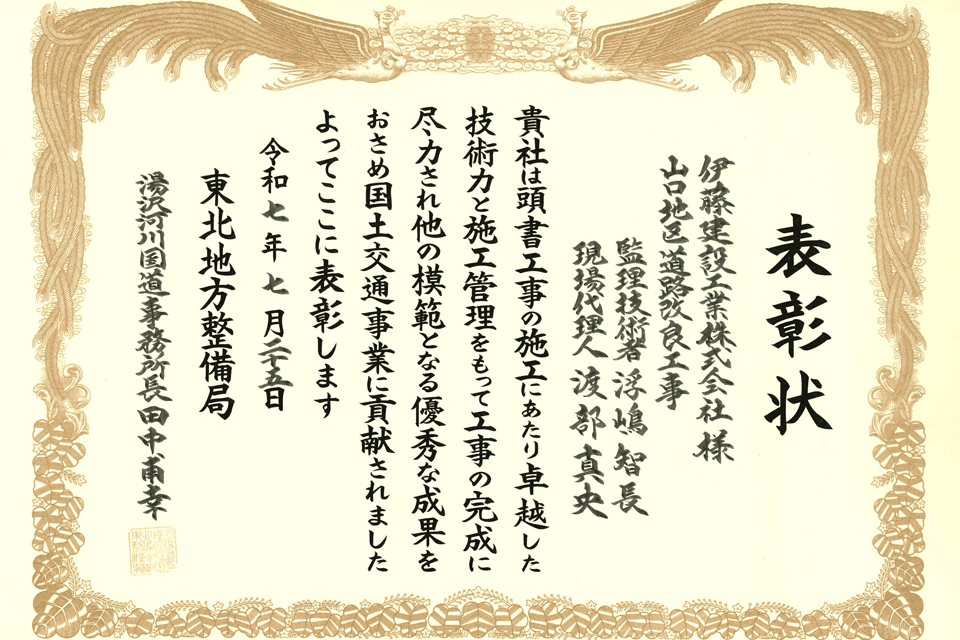 表彰状
伊藤建設工業株式会社 様
山口地区道路改良工事
監理技術者 浮嶋智長
現場代理人 渡部真央
貴社は頭書工事の施工にあたり卓越した
技術力と施工管理をもって工事の完成に
尽力され他の模範となる優秀な成果を
おさめ国土交通事業に貢献されました
よってここに表彰します
令和七年七月二十五日
東北地方整備局
湯沢河川国道事務所長 田中甫幸